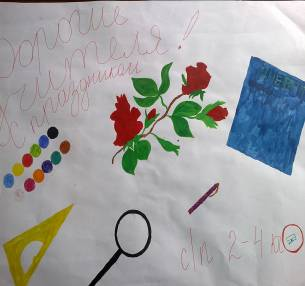 Дорогие
Учителя!
С праздником
с/п 2-4